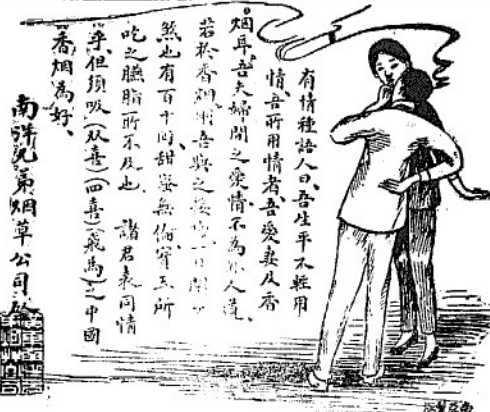 有情種語人曰、吾生平不輕用
情、吾所用情者、吾愛妻及香
烟耳、吾夫婦間之愛情、不為外人道、
若於香烟、吾與之接吻、一日間少
煞也有百十回、甜蜜無倫、寶玉所
吃之臙脂所不及也、諸君表同情
乎、但須吸(双喜)(四喜)(飛馬)之中國
香烟為好、
南洋兄弟烟草公司啟